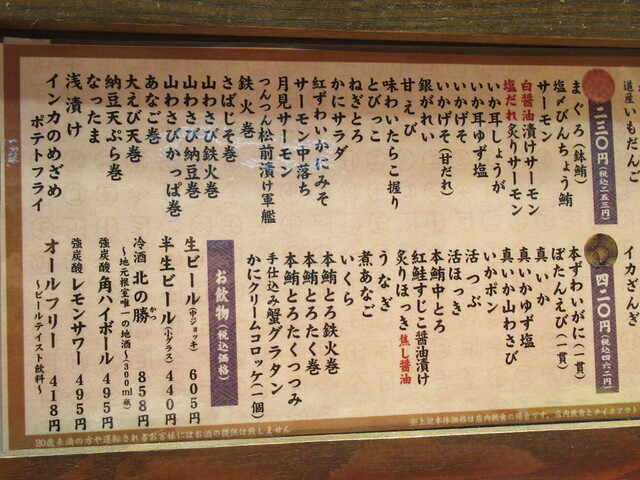 道産いもだんご
二三〇円(税込二五三円)
まぐろ(鉢鮪)
塩〆びんちょう鮪
サーモン
白醤油漬けサーモン
塩だれ炙りサーモン
いか耳しょうが
いか耳ゆず塩
いかげそ
いかげそ(甘だれ)
銀がれい
甘えび
味わいたらこ握り
とびっこ
ねぎとろ
かにサラダ
紅ずわいかにみそ
サーモン中落ち
月見サーモン
つんつん松前漬け軍艦
鉄火巻
さばじそ巻
山わさび鉄火巻
山わさび納豆巻
山わさびかっぱ巻
あなご巻
大えび天巻
納豆天ぷら巻
なったま
浅漬け
インカのめざめ
ポテトフライ
イカざんぎ
四二〇円(税込四六二円)
本ずわいがに(一貫)
ぼたんえび(一貫)
真いか
真いかゆず塩
真いか山わさび
いかポン
活つぶ
活ほっき
本鮪中とろ
紅鮭すじこ醤油漬け
炙りほっき焦し醤油
うなぎ
煮あなご
いくら
本鮪とろ鉄火巻
本鮪とろたく巻
本鮪とろたくつつみ
手仕込み蟹グラタン
かにクリームコロッケ(一個)
お飲物(税込価格)
生ビール(中ジョッキ) 605円
半生ビール(小グラス) 440円
冷酒 北の勝 858円
〜地元根室唯一の地酒〜(300ml瓶)
強炭酸 角ハイボール 495円
強炭酸 レモンサワー 495円
オールフリー 418円
〜ビールテイスト飲料〜
※上記本体価格は店内飲食の場合です。店内飲食とテイクアウト
20歳未満の方や運転されるお客様にはお酒の提供は致しません